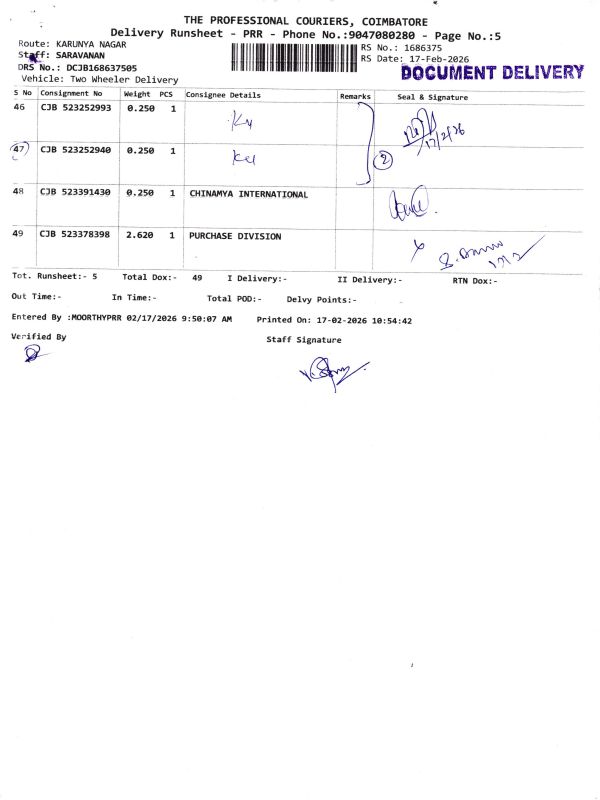 THE PROFESSIONAL COURIERS, COIMBATORE
Delivery Runsheet - PRR - Phone No.:9047080280 - Page No.:5
Route: KARUNYA NAGAR
RS No.: 1686375
Staff: SARAVANAN
RS Date: 17-Feb-2026
DRS No.: DCJB168637505
DOCUMENT DELIVERY
Vehicle: Two Wheeler Delivery
S No Consignment No Weight PCS Consignee Details Remarks Seal & Signature
46 CJB 523252993 0.250 1
17/2/26
47 CJB 523252940 0.250 1 2
48 CJB 523391430 0.250 1 CHINAMYA INTERNATIONAL
49 CJB 523378398 2.620 1 PURCHASE DIVISION
Tot. Runsheet:- 5 Total Dox:- 49 I Delivery:- II Delivery:- RTN Dox:-
Out Time:- In Time:- Total POD:- Delvy Points:-
Entered By :MOORTHYPRR 02/17/2026 9:50:07 AM Printed On: 17-02-2026 10:54:42
Verified By Staff Signature